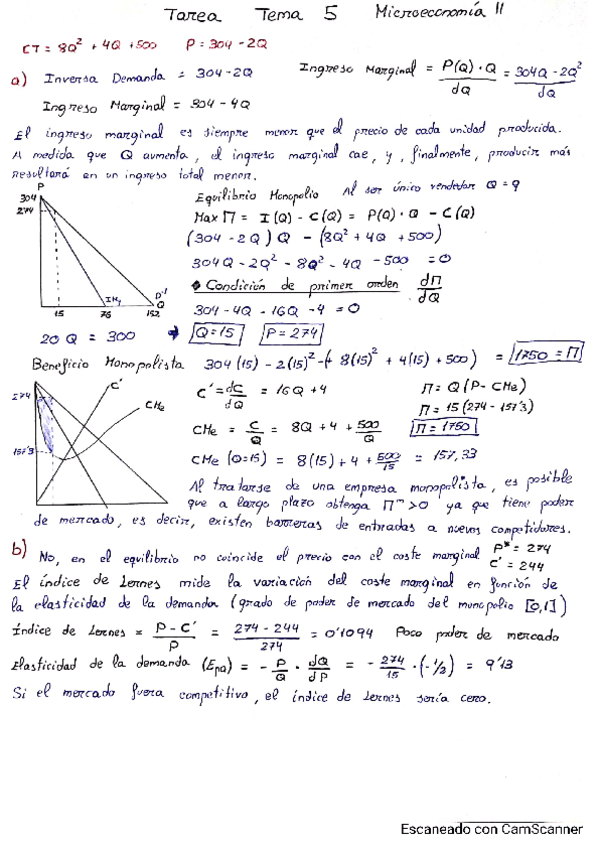 Tarea Tema 5 Microeconomía II
CT = 8Q² + 4Q + 500 P = 304 - 2Q
a) Inversa Demanda = 304 - 2Q Ingreso Marginal = P(Q) · Q / dQ = 304Q - 2Q² / dQ
Ingreso Marginal = 304 - 4Q
El ingreso marginal es siempre menor que el precio de cada unidad producida.
A medida que Q aumenta, el ingreso marginal cae, y, finalmente, producir más
resultará en un ingreso total menor.
P
304
274
15 76 152
IMg D⁻¹ Q
Equilibrio Monopolio Al ser único vendedor Q = q
Max Π = I(Q) - C(Q) = P(Q) · Q - C(Q)
(304 - 2Q) Q - (8Q² + 4Q + 500)
304Q - 2Q² - 8Q² - 4Q - 500 = 0
Condición de primer orden dΠ / dQ
304 - 4Q - 16Q - 4 = 0
20Q = 300 → Q = 15 P = 274
Beneficio Monopolista 304(15) - 2(15)² - (8(15)² + 4(15) + 500) = 1750 = Π
274
157'3
C'
CMe
C' = dC / dQ = 16Q + 4 Π = Q (P - CMe)
Π = 15 (274 - 157'3)
CMe = C / Q = 8Q + 4 + 500 / Q Π = 1750
CMe (Q=15) = 8(15) + 4 + 500 / 15 = 157,33
Al tratarse de una empresa monopolista, es posible
que a largo plazo obtenga Πᵐ > 0 ya que tiene poder
de mercado, es decir, existen barreras de entradas a nuevos competidores.
b) No, en el equilibrio no coincide el precio con el coste marginal P* = 274
C' = 244
El índice de Lernes mide la variación del coste marginal en función de
la elasticidad de la demanda (grado de poder de mercado del monopolio [0,1])
Índice de Lernes = P - C' / P = 274 - 244 / 274 = 0'1094 Poco poder de mercado
Elasticidad de la demanda (Epa) = - P / Q · dQ / dP = - 274 / 15 · (-1/2) = 9'13
Si el mercado fuera competitivo, el índice de Lernes sería cero.
Escaneado con CamScanner